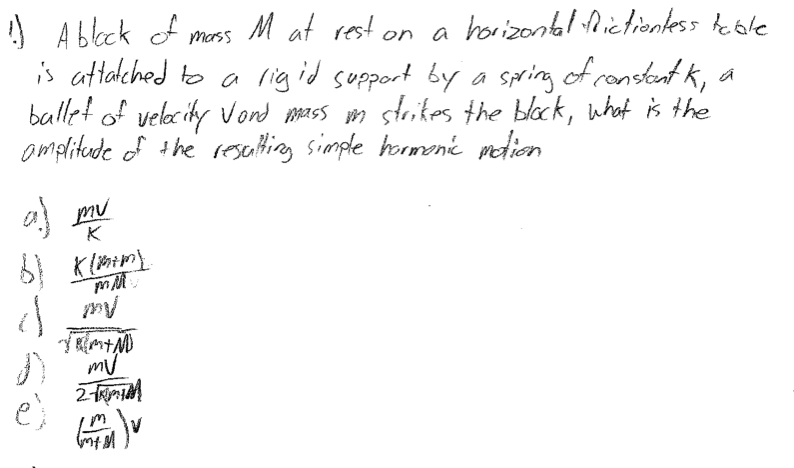 1.) A block of mass M at rest on a horizontal frictionless table
is attatched to a rigid support by a spring of constant k, a
bullet of velocity V and mass m strikes the block, what is the
amplitude of the resulting simple harmonic motion
a.) mv/K
b) K(m+m)/mM
c) mv/√K(m+M)
d) mv/2√K(m+M)
e) (m/m+M)V